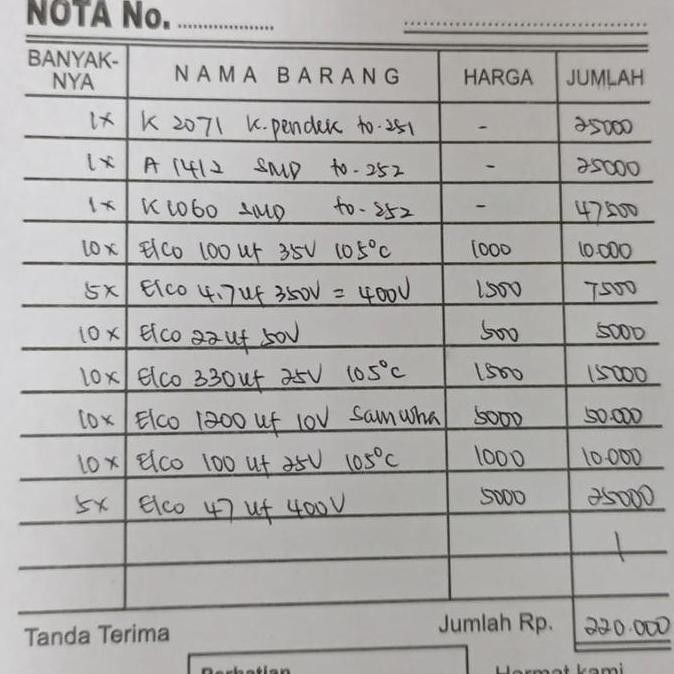 NOTA No. ....................
BANYAK-NYA NAMA BARANG HARGA JUMLAH
1x K 2071 K.pendek to-251 - 25000
1x A 1412 SMD to-252 - 25000
1x K1060 SMD to-252 - 47500
10x Elco 100 uf 35V 105°C 1000 10.000
5x Elco 4.7uf 350V = 400V 1500 7500
10x Elco 22uf 50V 500 5000
10x Elco 330uf 25V 105°C 1500 15000
10x Elco 1200 uf 10V Samwha 5000 50.000
10x Elco 100 uf 25V 105°C 1000 10.000
5x Elco 47 uf 400V 5000 25000
Tanda Terima Jumlah Rp. 220.000
Perhatian Hormat kami